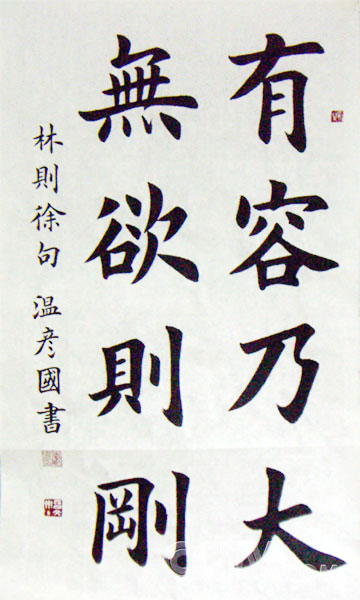 有容乃大
無欲則剛
林則徐句 温彦國書